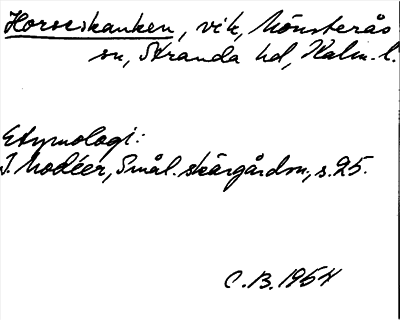 Horseskanken, vik, Mönsterås
sn, Stranda hd, Kalm. l.
Etymologi:
I. Modéer, Smål. skärgårdsn, s. 25.
C. B. 1964